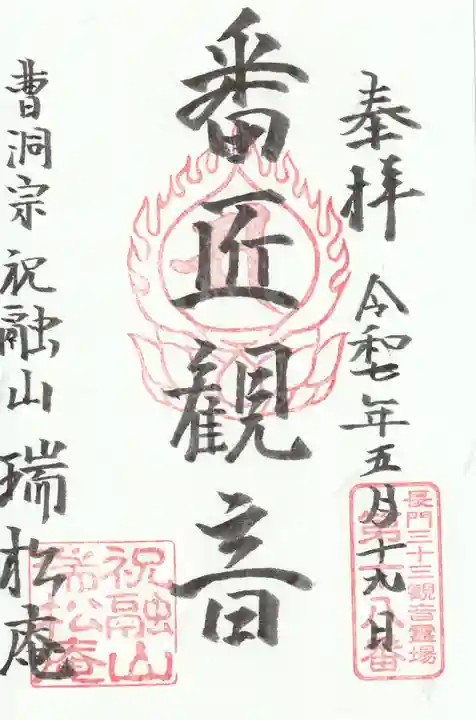 奉拝 令和七年五月十九日
長門三十三観音霊場
番
番匠観音
曹洞宗 祝融山 瑞松庵
祝融山
瑞松庵